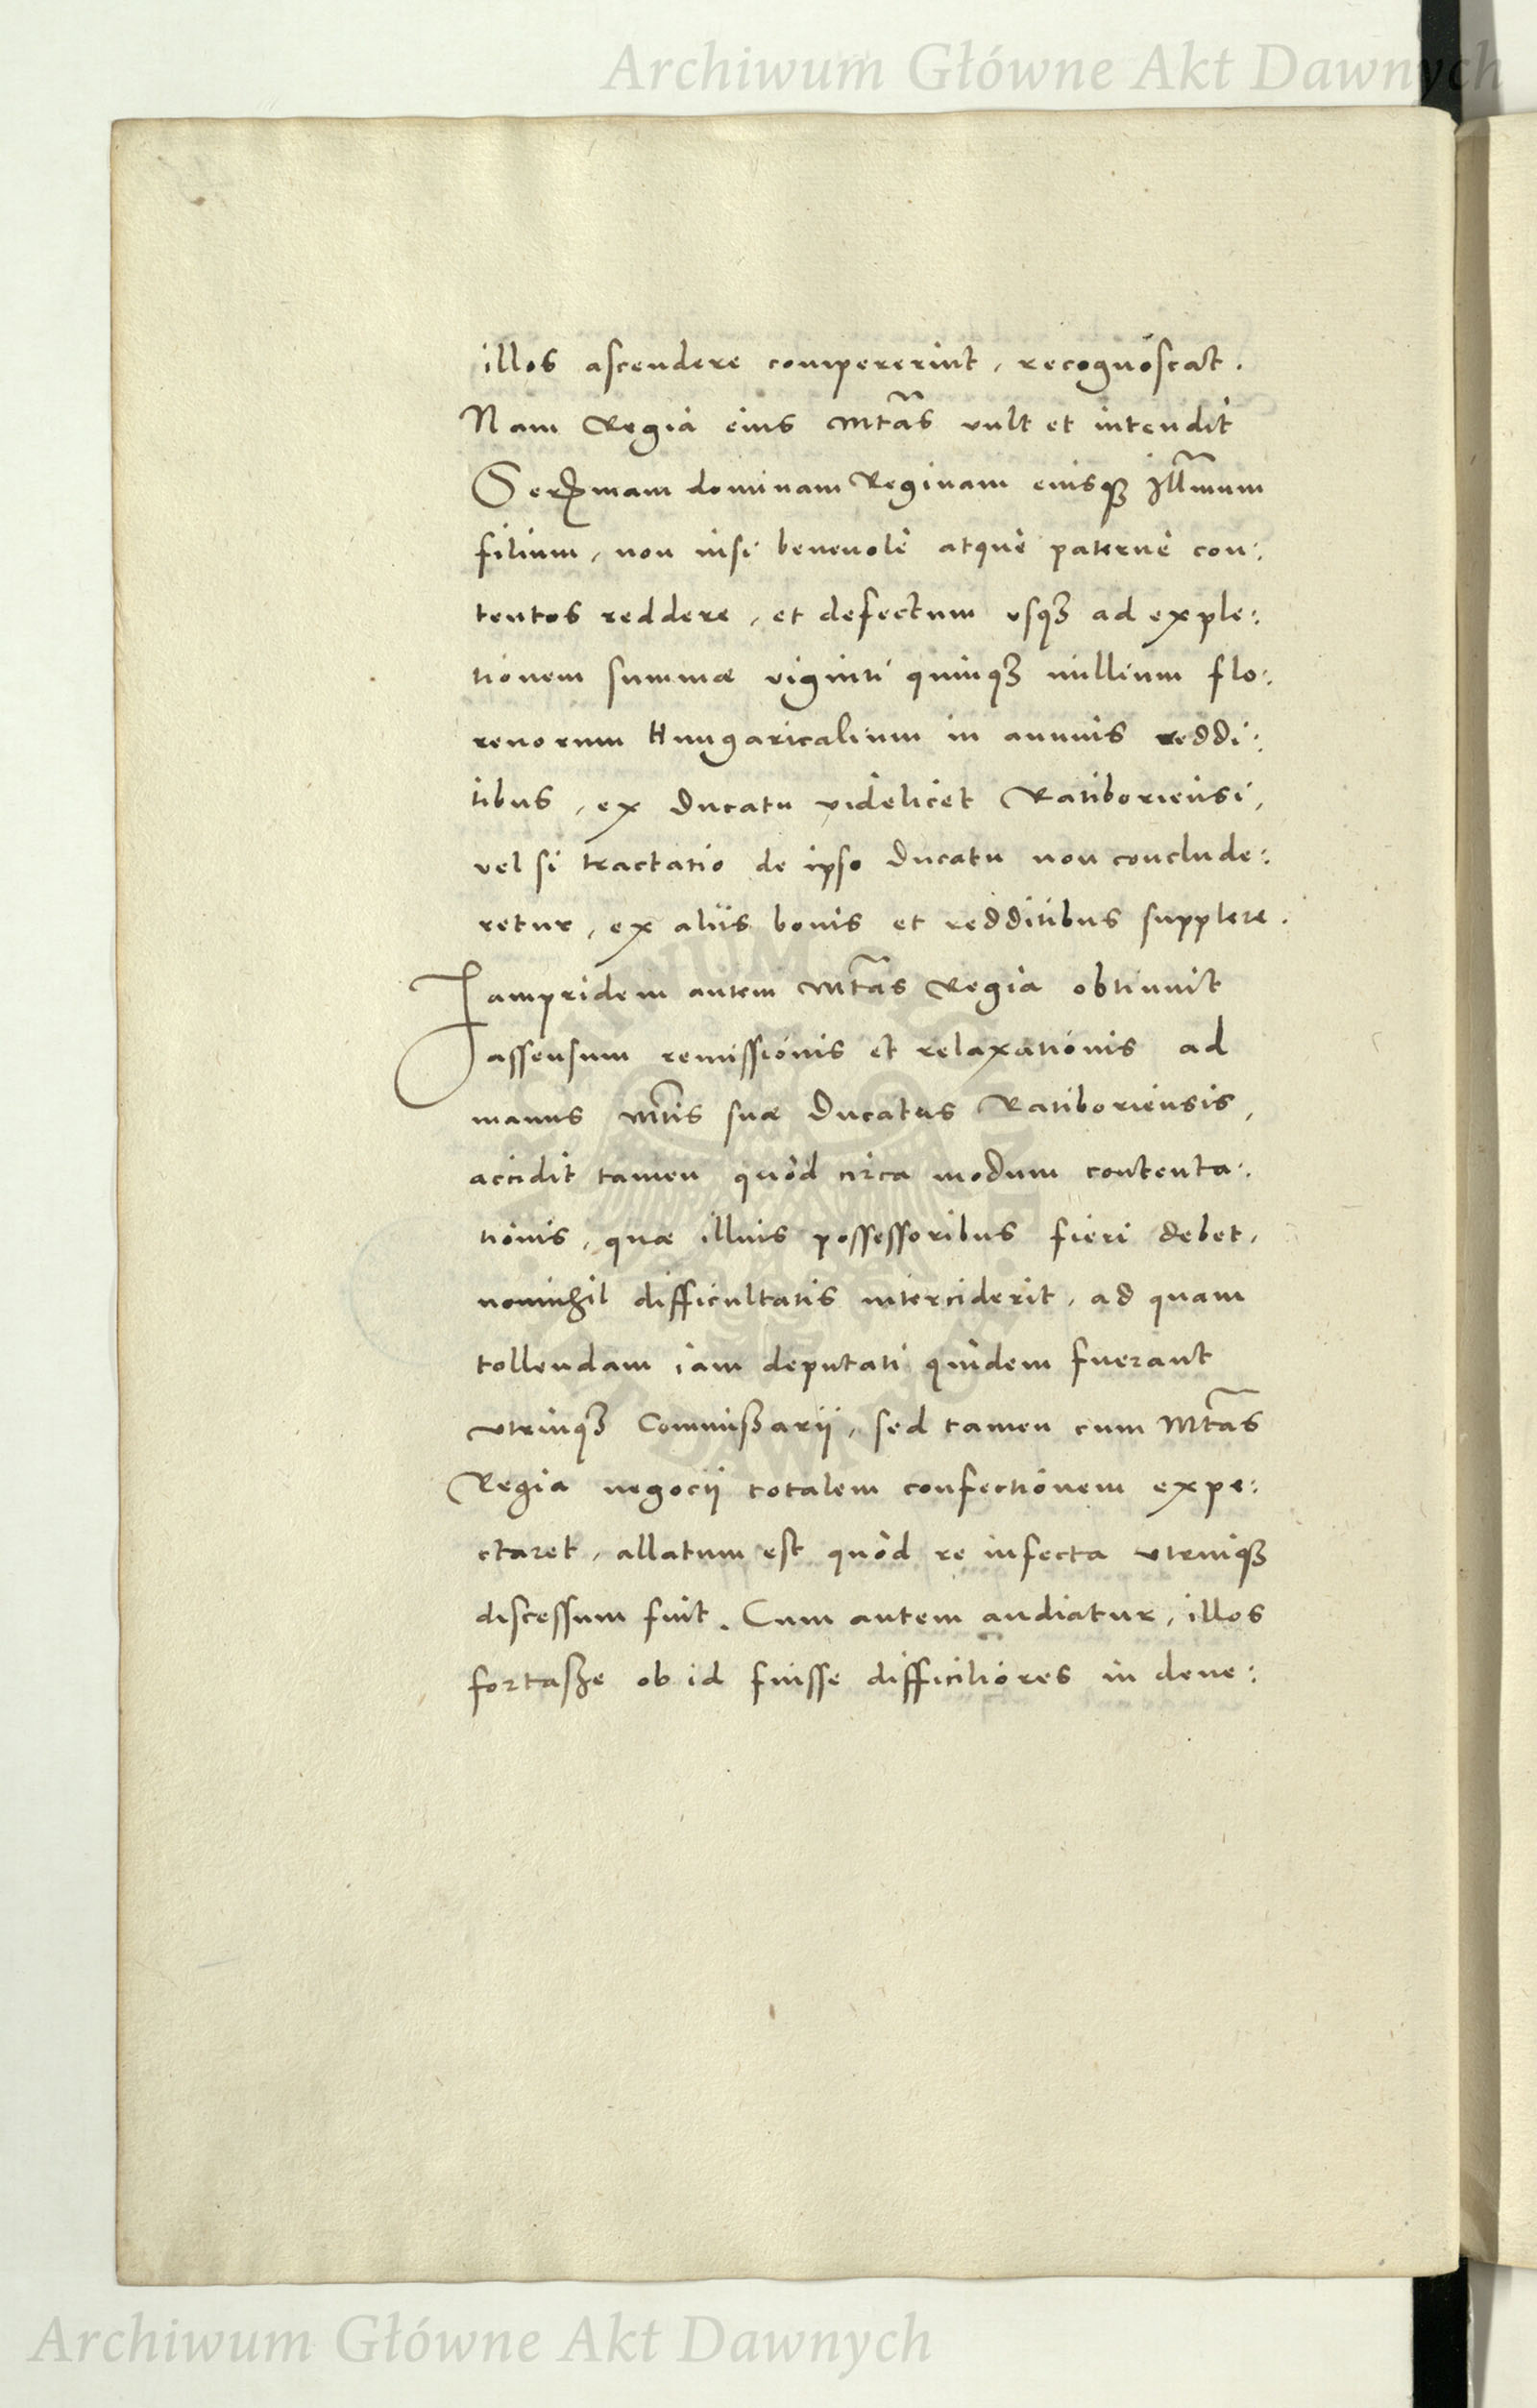 Archiwum Główne Akt Dawnych
illos ascendere compererint, recognoscat.
Nam Regia eius Mtas vult et intendit
Serᵐmam dominam Reginam eiusq3 Illmum
filium, non nisi beneuolè atquè paternè con:
tentos reddere, et defectum vsq3 ad exple:
tionem summæ viginti quinq3 millium flo:
renorum Hungaricalium in annuis reddi:
tibus, ex Ducatu videlicet Ratiboriensi,
vel si tractatio de ipso Ducatu non conclude:
retur, ex aliis bonis et redditibus supplere.
Iampridem autem Mtas Regia obtinuit
assensum remissionis et relaxationis ad
manus Mtis suæ Ducatus Ratiboriensis,
accidit tamen quòd circa modum contenta:
tionis, quæ illius possessoribus fieri debet,
nonnihil difficultatis interciderit, ad quam
tollendam iam deputati quidem fuerant
vtrinq3 Commißarij, sed tamen cum Mtas
Regia negocij totalem confectionem expe:
ctaret, allatum est quòd re infecta vtrinq3
discessum fuit. Cum autem audiatur, illos
fortaße ob id fuisse difficiliores in dene:
Archiwum Główne Akt Dawnych